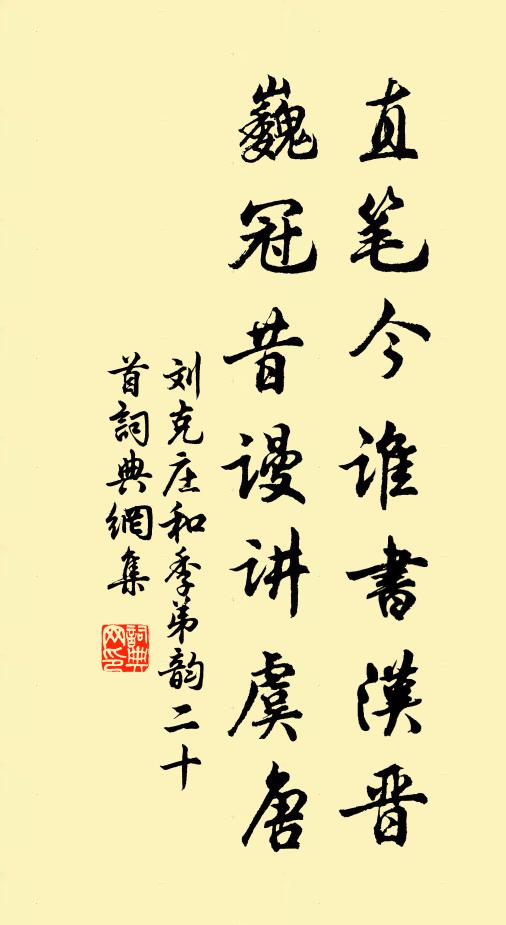 直笔今谁書漢晋
巍冠昔谩讲虞唐
刘克庄和季弟韵二十
首詞典網集
詞典
网印